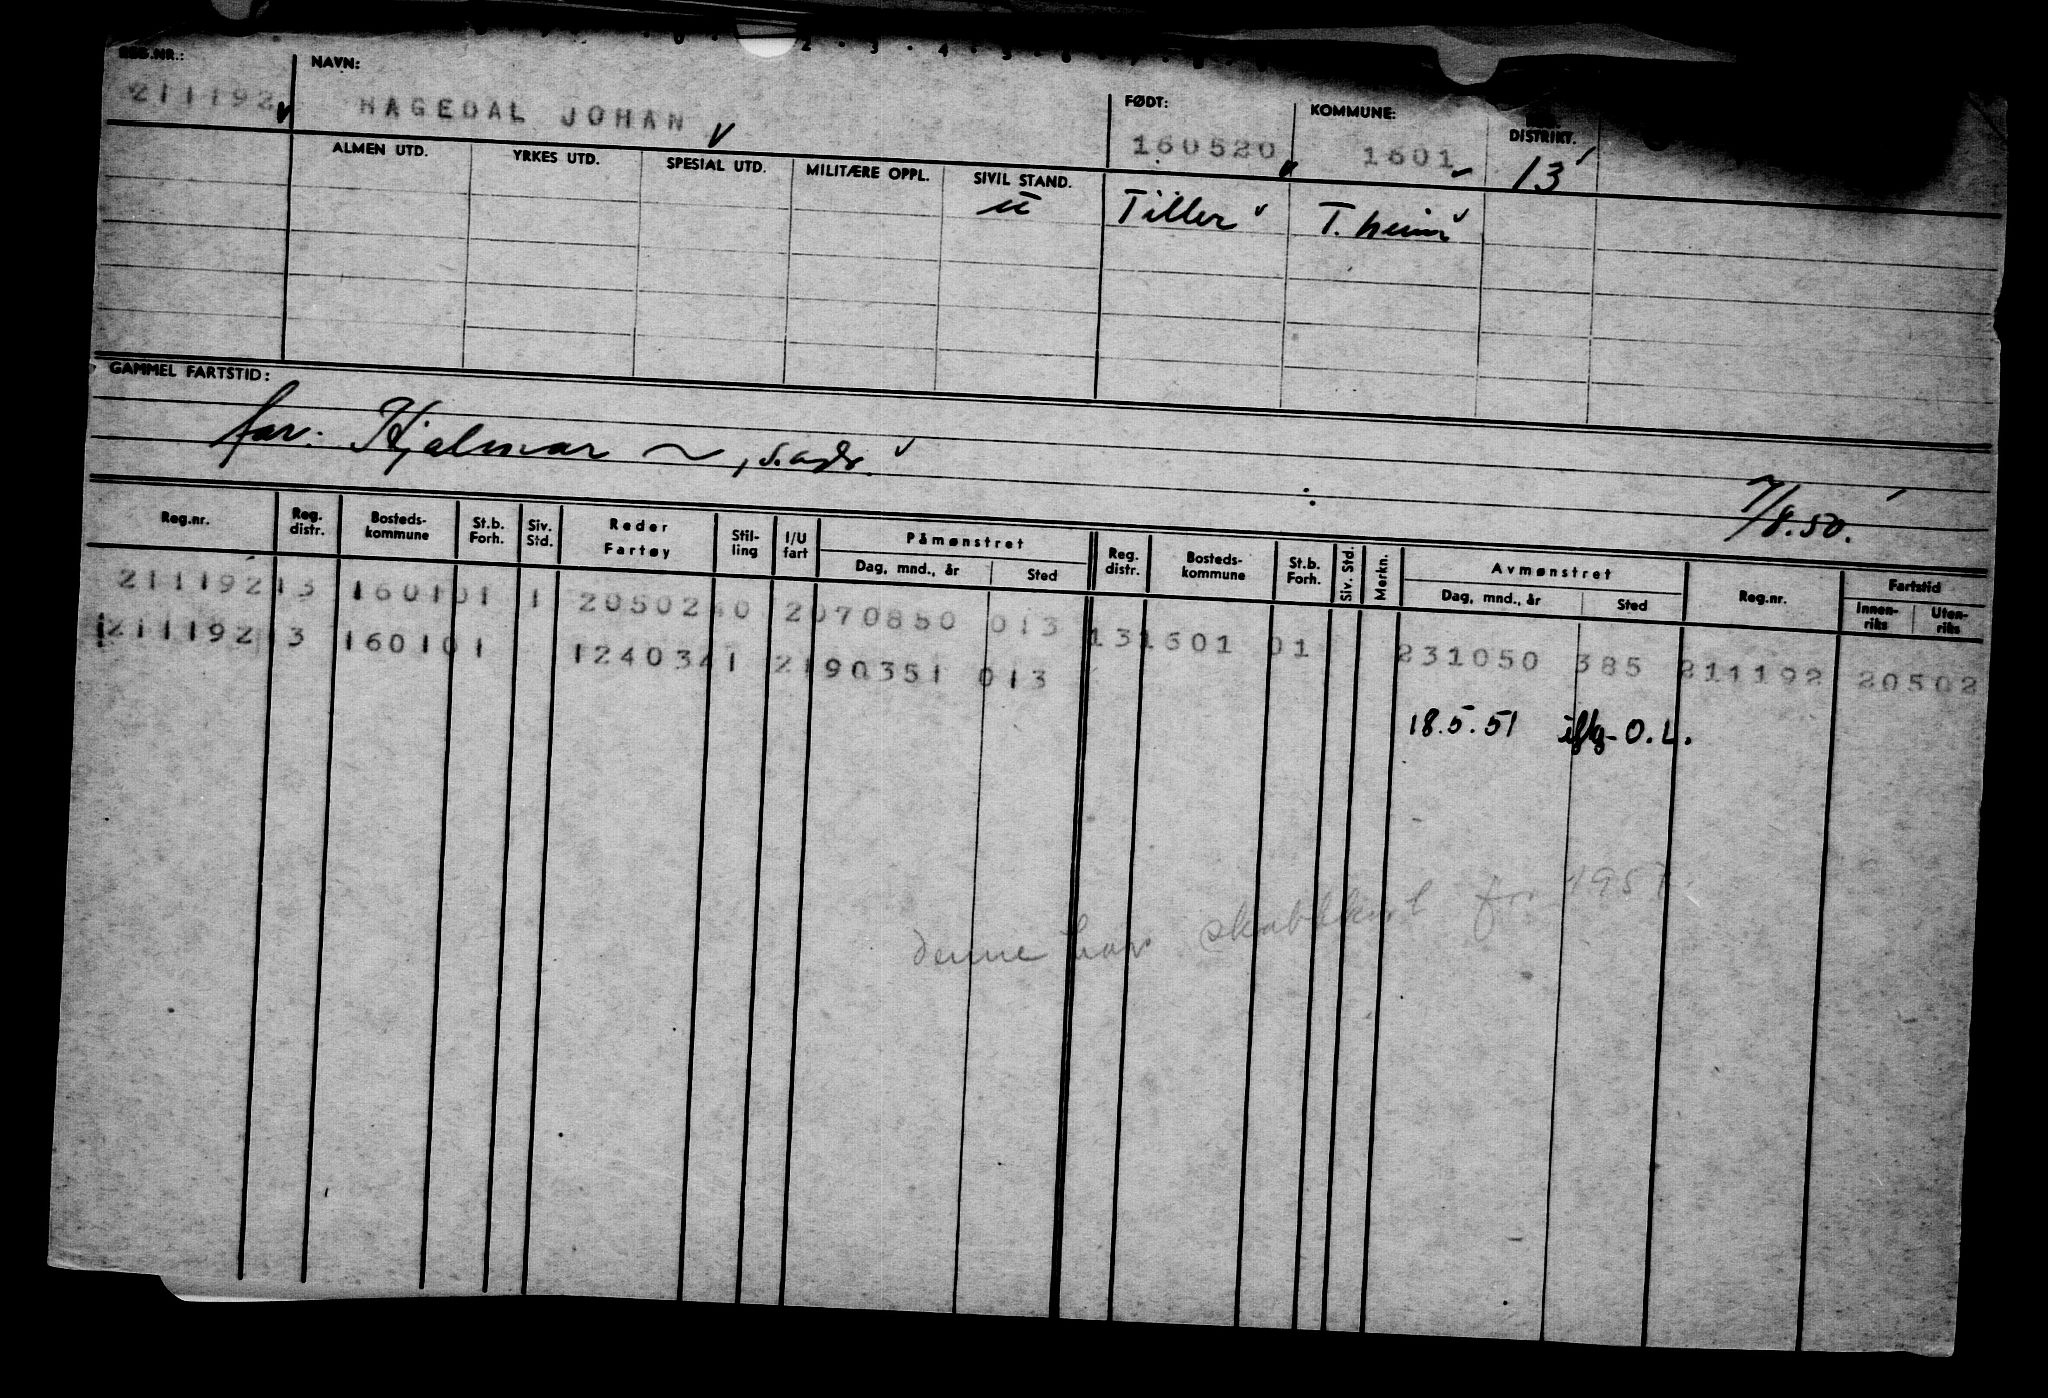 REG.NR.: NAVN: FØDT: KOMMUNE: DISTRIKT.
211192 HAGEDAL JOHAN 160520 1601 13
ALMEN UTD. YRKES UTD. SPESIAL UTD. MILITÆRE OPPL. SIVIL STAND.
Tiller T.heim
GAMMEL FARTSTID:
far: Hjalmar ~, s.adr.
7/8.50.
Reg.nr. Reg. distr. Bosteds-kommune St.b. Forh. Siv. Std. Reder Fartøy Stil-ling I/U fart Påmønstret Dag, mnd., år Sted Reg. distr. Bosteds-kommune St.b. Forh. Siv. Std. Merkn. Avmønstret Dag, mnd., år Sted Reg.nr. Fartstid Innen-riks Uten-riks
211192 13 1601 01 1 20502 40 2 070850 013 13 1601 01 231050 385 211192 20502
211192 13 1601 01 12403 41 2 190351 013
18.5.51 O.L.
denne har skabbkort for 1951.